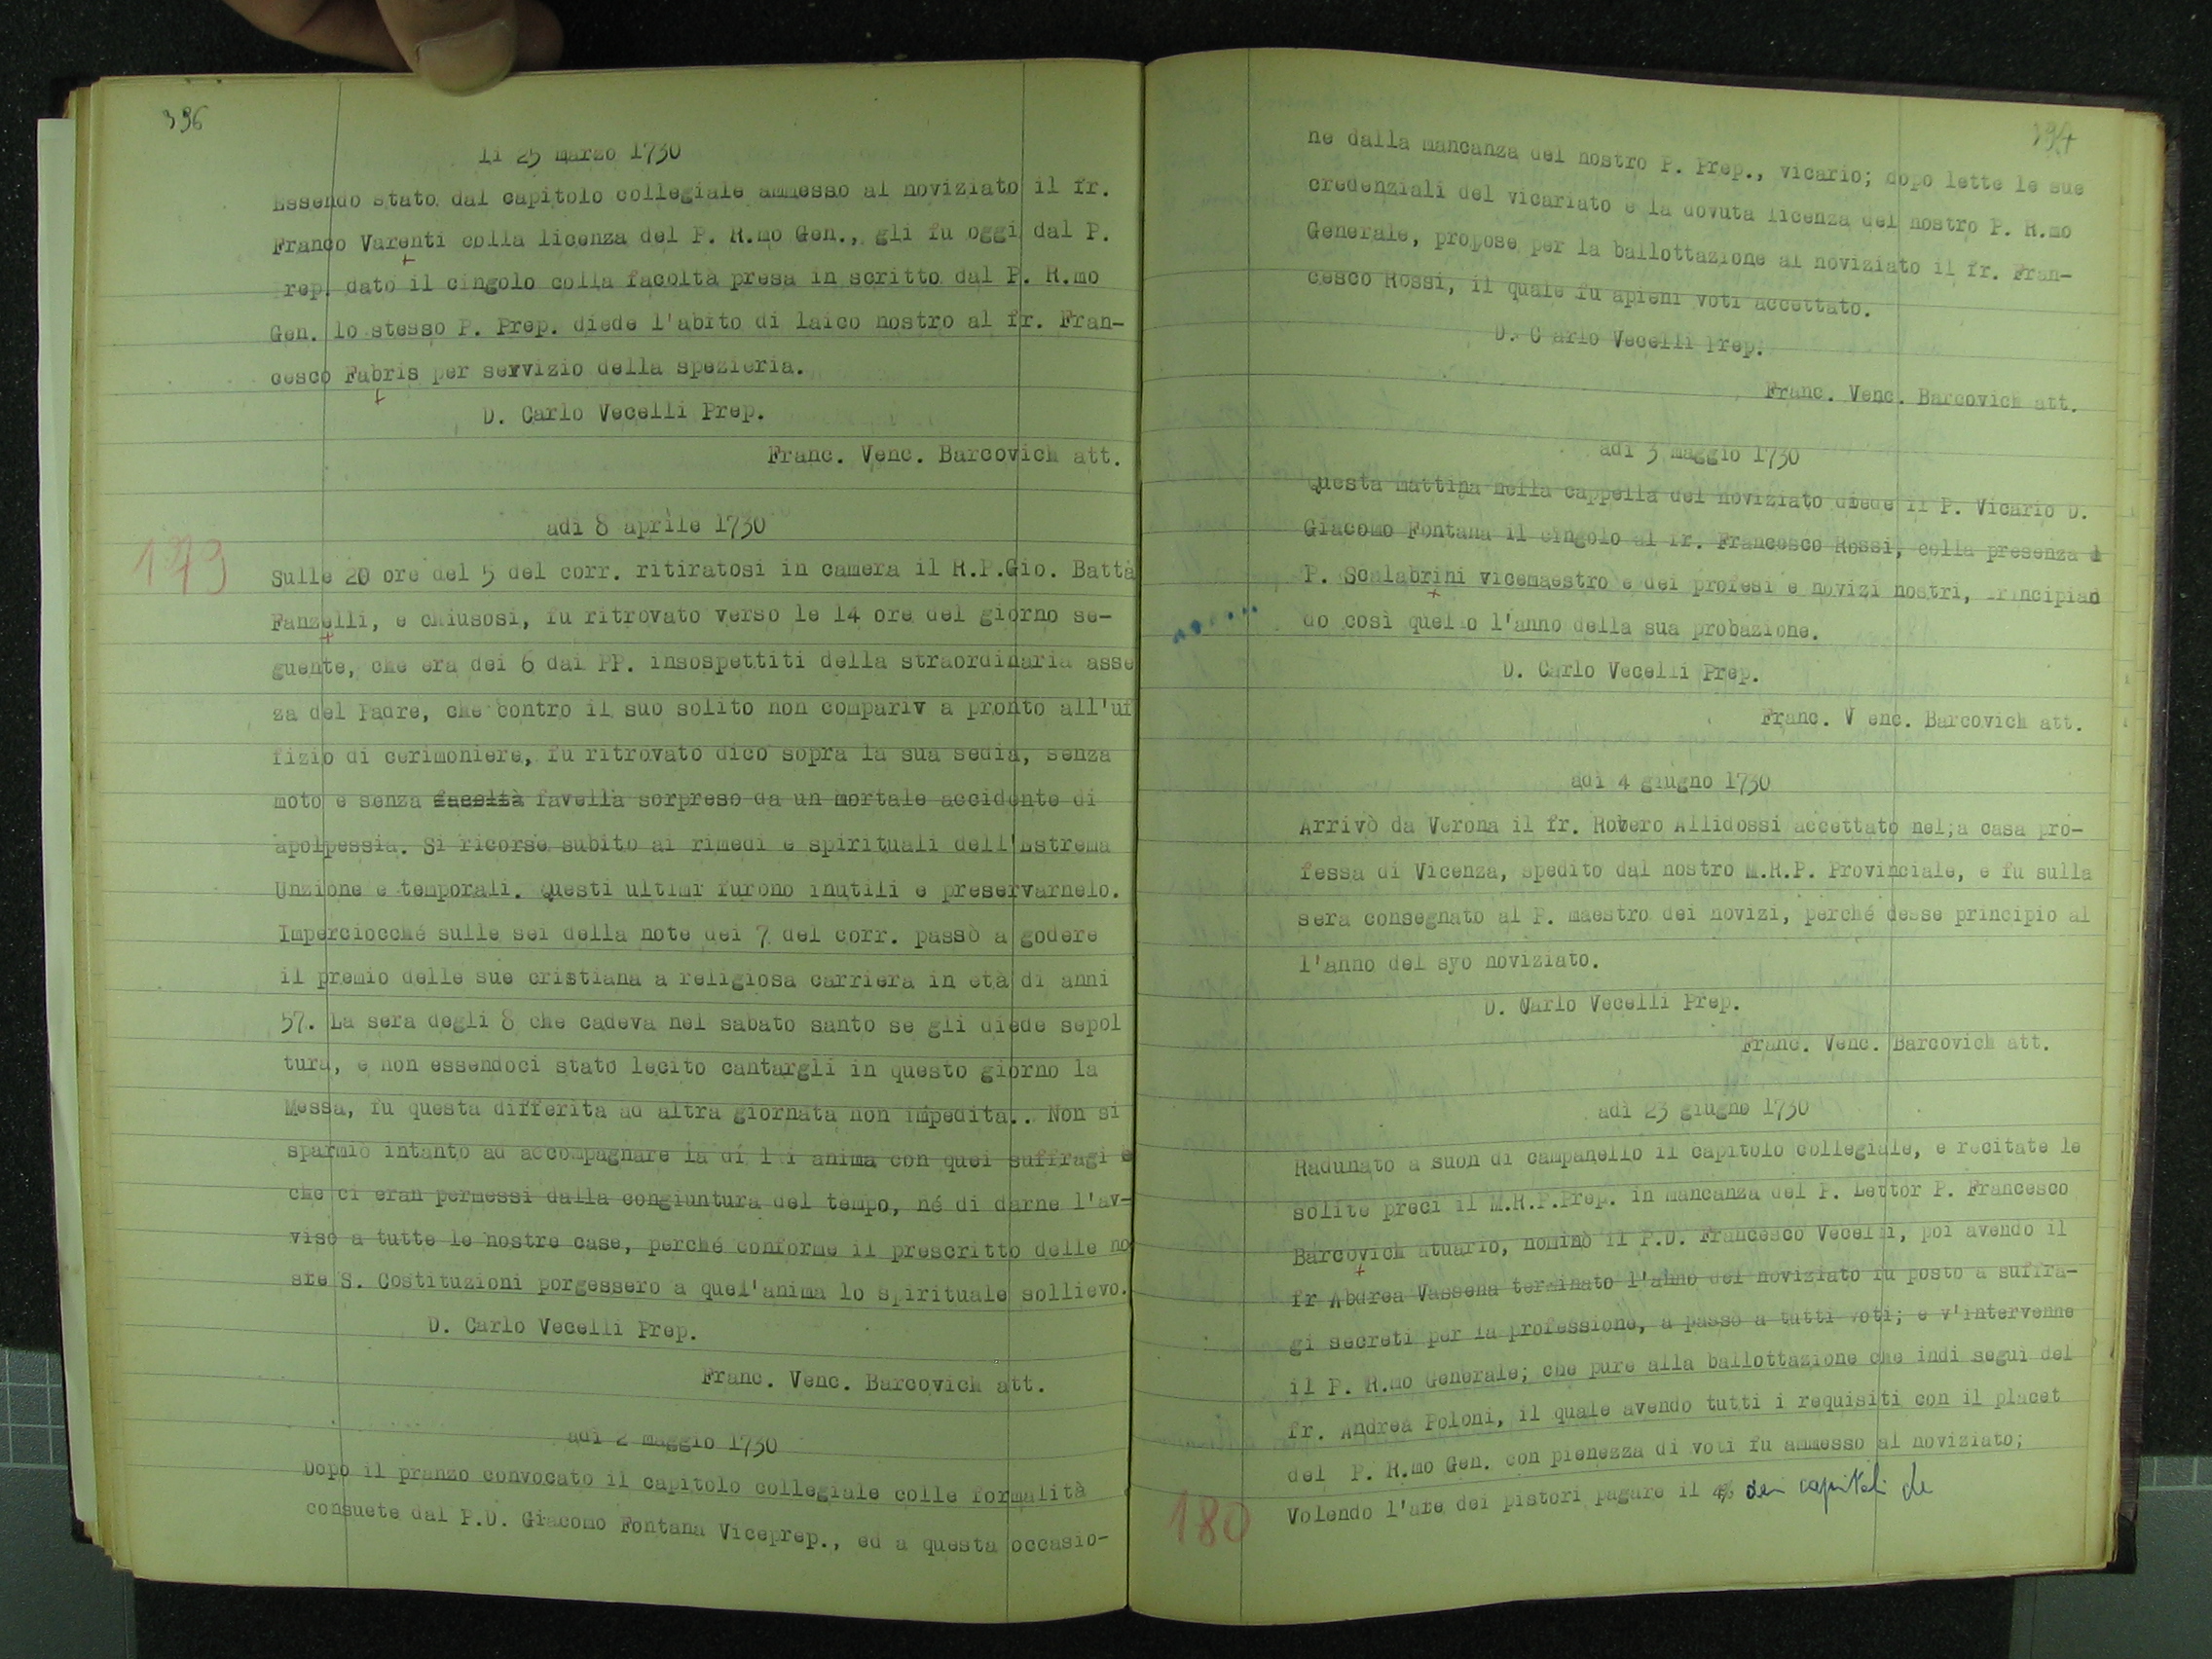 396
li 25 marzo 1730
Essendo stato dal capitolo collegiale ammesso al noviziato il fr.
Franco Varenti colla licenza del P. R.mo Gen., gli fu oggi dal P.
rep. dato il cingolo colla facoltà presa in scritto dal P. R.mo
Gen. lo stesso P. Prep. diede l'abito di laico nostro al fr. Fran-
cesco Fabris per servizio della spezieria.
D. Carlo Vecelli Prep.
Franc. Venc. Barcovich att.
adi 8 aprile 1730
Sulle 20 ore del 5 del corr. ritiratosi in camera il R.P.Gio. Batta
Fanzelli, e chiusosi, fu ritrovato verso le 14 ore del giorno se-
guente, che era dei 6 dai PP. insospettiti della straordinaria asse
za del Padre, che contro il suo solito non compariv a pronto all'uf
fizio di cerimoniere, fu ritrovato dico sopra la sua sedia, senza
moto e senza facoltà favella sorpreso da un mortale accidente di
apolpessia. Si ricorse subito ai rimedi e spirituali dell'Estrema
Unzione e temporali. Questi ultimi furono inutili e preservarnelo.
Imperciocché sulle sei della note dei 7 del corr. passò a godere
il premio delle sue cristiana a religiosa carriera in età di anni
57. La sera degli 8 che cadeva nel sabato santo se gli diede sepol
tura, e non essendoci stato lecito cantargli in questo giorno la
Messa, fu questa differita ad altra giornata non impedita.. Non si
sparmiò intanto ad accompagnare la di l i anima con quei suffragi e
che ci eran permessi dalla congiuntura del tempo, né di darne l'av-
viso a tutte le nostre case, perché conforme il prescritto delle no
stre S. Costituzioni porgessero a quel'anima lo spirituale sollievo.
D. Carlo Vecelli Prep.
Franc. Venc. Barcovich att.
adi 2 maggio 1730
Dopo il pranzo convocato il capitolo collegiale colle formalità
consuete dal P.D. Giacomo Fontana Viceprep., ed a questa occasio-
ne dalla mancanza del nostro P. Prep., vicario; dopo lette le sue
credenziali del vicariato e la dovuta licenza del nostro P. R.mo
Generale, propose per la ballottazione al noviziato il fr. Fran-
cesco Rossi, il quale fu apieni voti accettato.
D. C arlo Vecelli Prep.
Franc. Venc. Barcovich att.
adi 3 maggio 1730
Questa mattina nella cappella del noviziato diede il P. Vicario D.
Giacomo Fontana il cingolo al fr. Francesco Rossi, colla presenza d
P. Scalabrini vicemaestro e dei profesi e novizi nostri, Principian
do così quello l'anno della sua probazione.
D. Carlo Vecelli Prep.
Franc. V enc. Barcovich att.
adi 4 giugno 1730
Arrivò da Verona il fr. Accettato nel;a casa pro-
fessa di Vicenza, spedito dal nostro M.R.P. Provinciale, e fu sulla
sera consegnato al P. maestro dei novizi, perché desse principio al
l'anno del syo noviziato.
D. Carlo Vecelli Prep.
Franc. Venc. Barcovich att.
adi 23 giugno 1730
Radunato a suon di campanello il capitolo collegiale, e recitate le
solite preci il M.R.P.Prep. in mancanza del P. Lettor P. Francesco
Barcovich atuario, nominò il P.D. Francesco Vecelli, poi avendo il
fr Abdrea Vassena terminato l'anno del noviziato fu posto a suffra-
gi secreti per la professione, a passò a tutti voti; e v'intervenne
il P. R.mo Generale; che pure alla ballottazione che indi seguì del
fr. Andrea Poloni, il quale avendo tutti i requisiti con il placet
del P. R.mo Gen. con pienezza di voti fu ammesso al noviziato;
180
Volendo l'are dei pistori pagare il dei capitali de